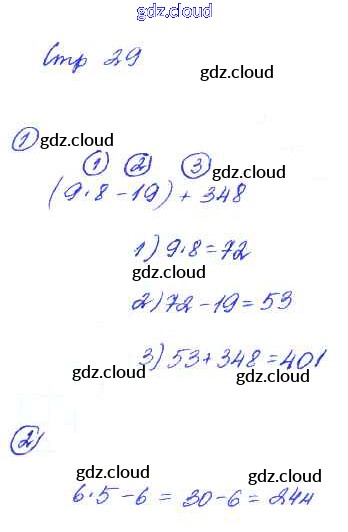 gdz.cloud
Стр 29
gdz.cloud
① gdz.cloud
① ② ③ gdz.cloud
(9·8 - 19) + 348
1) 9·8 = 72
gdz.cloud
2) 72 - 19 = 53
gdz.cloud
3) 53 + 348 = 401
gdz.cloud gdz.cloud
②
gdz.cloud gdz.cloud
6·5 - 6 = 30 - 6 = 24 м